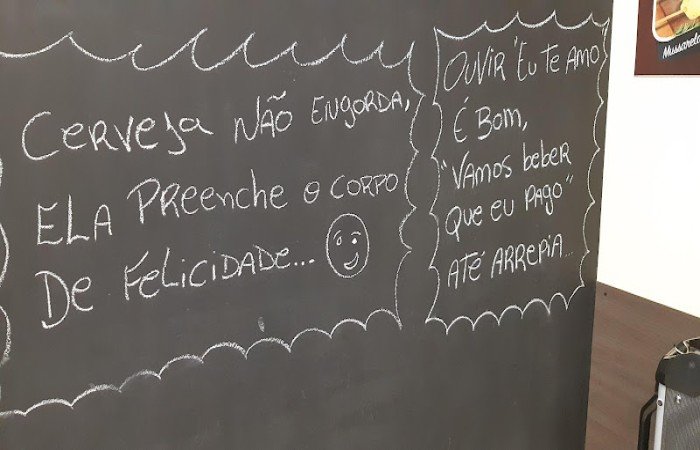 Cerveja não engorda,
ela preenche o corpo
de felicidade...
Ouvir "Eu te amo"
é bom,
"vamos beber
que eu pago"
até arrepia...